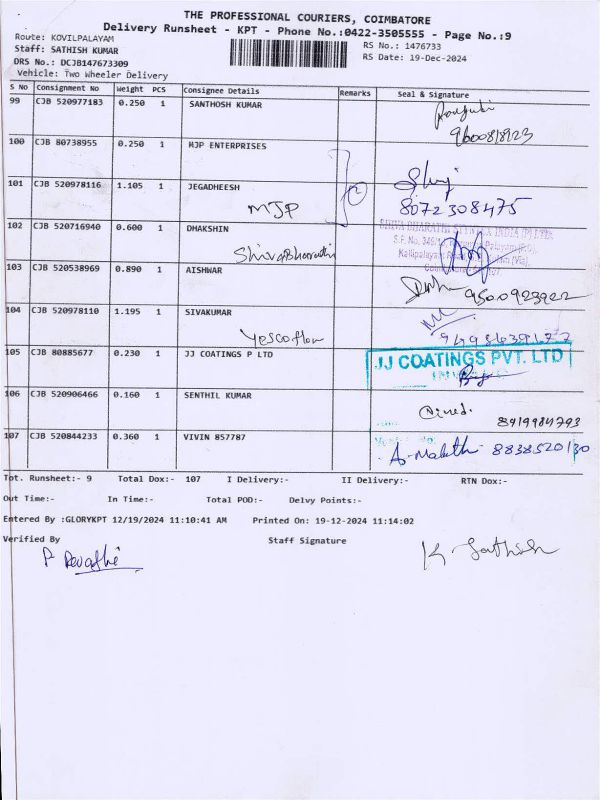 THE PROFESSIONAL COURIERS, COIMBATORE
Delivery Runsheet - KPT - Phone No.:0422-3505555 - Page No.:9
Route: KOVILPALAYAM
RS No.: 1476733
Staff: SATHISH KUMAR
RS Date: 19-Dec-2024
DRS No.: DCJB147673309
Vehicle: Two Wheeler Delivery
S No Consignment No Weight PCS Consignee Details Remarks Seal & Signature
99 CJB 520977183 0.250 1 SANTHOSH KUMAR
100 CJB 80738955 0.250 1 MJP ENTERPRISES
101 CJB 520978116 1.105 1 JEGADHEESH
MJP 2 8072308475
102 CJB 520716940 0.600 1 DHAKSHIN
ShivaBharathi
103 CJB 520538969 0.890 1 AISHWAR
9500923922
104 CJB 520978110 1.195 1 SIVAKUMAR
Yescoflow
105 CJB 80885677 0.230 1 JJ COATINGS P LTD JJ COATINGS PVT. LTD
106 CJB 520906466 0.160 1 SENTHIL KUMAR
8419984793
107 CJB 520844233 0.360 1 VIVIN 857787
A. Malathi 8838520130
Tot. Runsheet:- 9 Total Dox:- 107 I Delivery:- II Delivery:- RTN Dox:-
Out Time:- In Time:- Total POD:- Delvy Points:-
Entered By :GLORYKPT 12/19/2024 11:10:41 AM Printed On: 19-12-2024 11:14:02
Verified By Staff Signature
K. Sathish